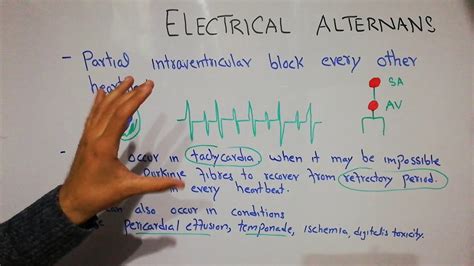 ELECTRICAL ALTERNANS
- Partial intraventricular block every other
SA
AV
occur in tachycardia when it may be impossible
Purkinje fibres to recover from refractory period.
in every heartbeat.
can also occur in conditions
pericardial effusion, temponade, ischemia, digitalis toxicity.